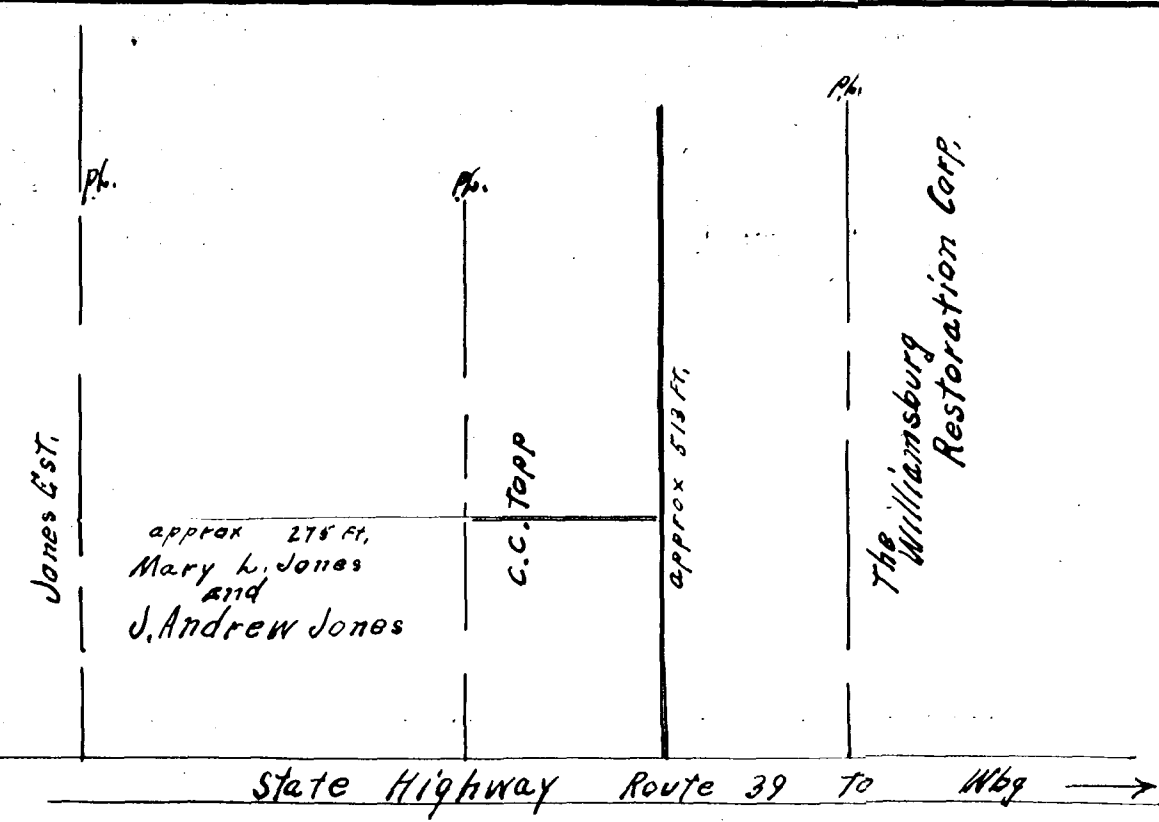 P.L.
P.L.
P.L.
Jones Est.
approx 275 Ft.
Mary L. Jones
and
J. Andrew Jones
C.C. Topp
approx 513 FT.
The
Williamsburg
Restoration Corp.
State Highway Route 39 To Wbg